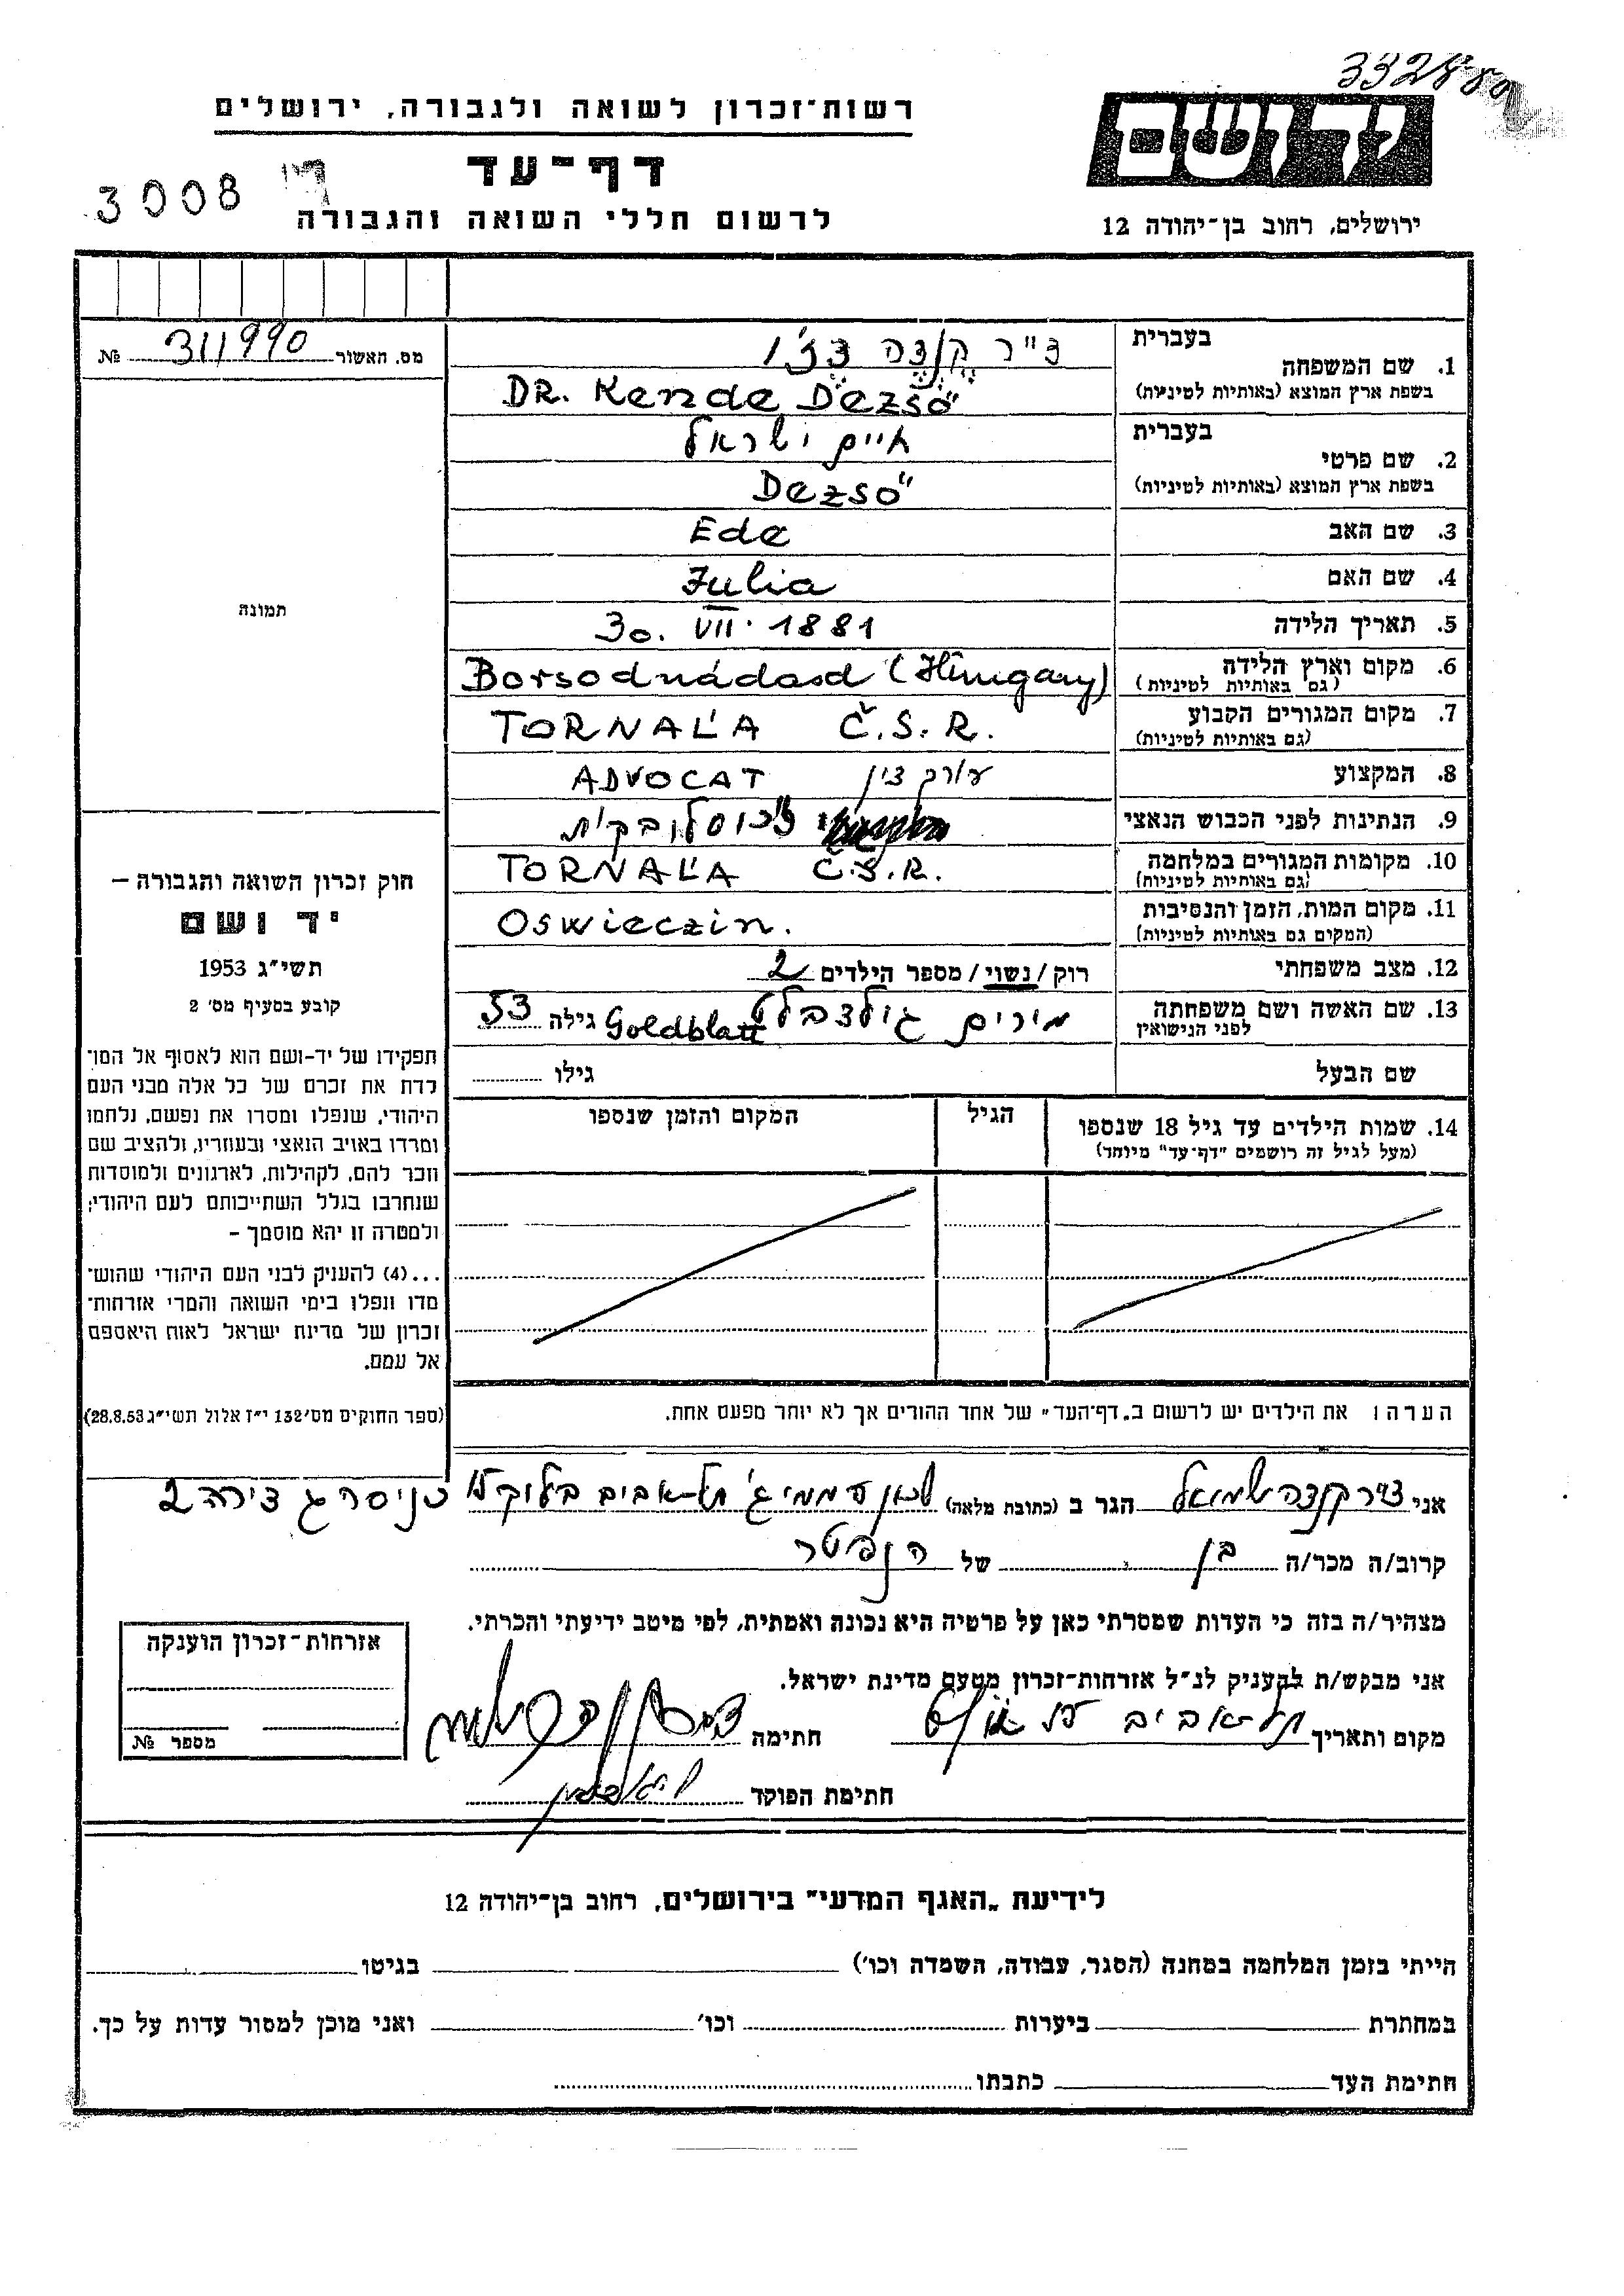 332480
ידושם
רשות־זכרון לשואה ולגבורה, ירושלים
דף־עד
3008
לרשום חללי השואה והגבורה
ירושלים, רחוב בן־יהודה 12
מס. האשור 311990 №
1. שם המשפחה
בעברית ד"ר קנדה דז'ו
בשפת ארץ המוצא (באותיות לטיניות) DR. Kende Dezső
2. שם פרטי
בעברית חיים ישראל
בשפת ארץ המוצא (באותיות לטיניות) Dezső
3. שם האב Ede
4. שם האם Julia
5. תאריך הלידה 30. VII. 1881
6. מקום וארץ הלידה (גם באותיות לטיניות) Borsodnádasd (Hungary)
7. מקום המגורים הקבוע (גם באותיות לטיניות) TORNAL'A Č.S.R.
8. המקצוע עורך דין ADVOCAT
9. הנתינות לפני הכבוש הנאצי
10. מקומות המגורים במלחמה (גם באותיות לטיניות) TORNAL'A Č.S.R.
11. מקום המות, הזמן והנסיבות (המקום גם באותיות לטיניות) Oswieczin.
12. מצב משפחתי רוק / נשוי / מספר הילדים 2
13. שם האשה ושם משפחתה לפני הנישואין מירים גולדבלט Goldblatt גילה 53
שם הבעל גילו
14. שמות הילדים עד גיל 18 שנספו הגיל המקום והזמן שנספו
(מעל לגיל זה רושמים "דף־עד" מיוחד)
הערה: את הילדים יש לרשום ב„דף־העד" של אחד ההורים אך לא יותר מפעם אחת.
תמונה
חוק זכרון השואה והגבורה –
יד ושם
תשי"ג 1953
קובע בסעיף מס' 2
תפקידו של יד-ושם הוא לאסוף אל המו־
לדת את זכרם של כל אלה מבני העם
היהודי, שנפלו ומסרו את נפשם, נלחמו
ומרדו באויב הנאצי ובעוזריו, ולהציב שם
וזכר להם, לקהילות, לארגונים ולמוסדות
שנחרבו בגלל השתייכותם לעם היהודי;
ולמטרה זו יהא מוסמך –
...(4) להעניק לבני העם היהודי שהוש־
מדו ונפלו בימי השואה והמרי אזרחות־
זכרון של מדינת ישראל לאות היאספם
אל עמם.
(ספר החוקים מס' 132 י"ז אלול תשי"ג 28.8.53)
אני ד"ר קנדה שמואל הגר ב (כתובת מלאה) שכון עממי ג' תל-אביב בלוק 15 כניסה ג דירה 2
קרוב/ה מכר/ה בן של הנפטר
מצהיר/ה בזה כי העדות שמסרתי כאן על פרטיה היא נכונה ואמתית, לפי מיטב ידיעתי והכרתי.
אני מבקש/ת להעניק לנ"ל אזרחות-זכרון מטעם מדינת ישראל.
מקום ותאריך תל-אביב חתימה
חתימת הפוקד
אזרחות-זכרון הוענקה
מספר №
לידיעת „האגף המדעי" בירושלים, רחוב בן־יהודה 12
הייתי בזמן המלחמה במחנה (הסגר, עבודה, השמדה וכו') בגיטו
במחתרת ביערות וכו' ואני מוכן למסור עדות על כך.
חתימת העד כתבתו